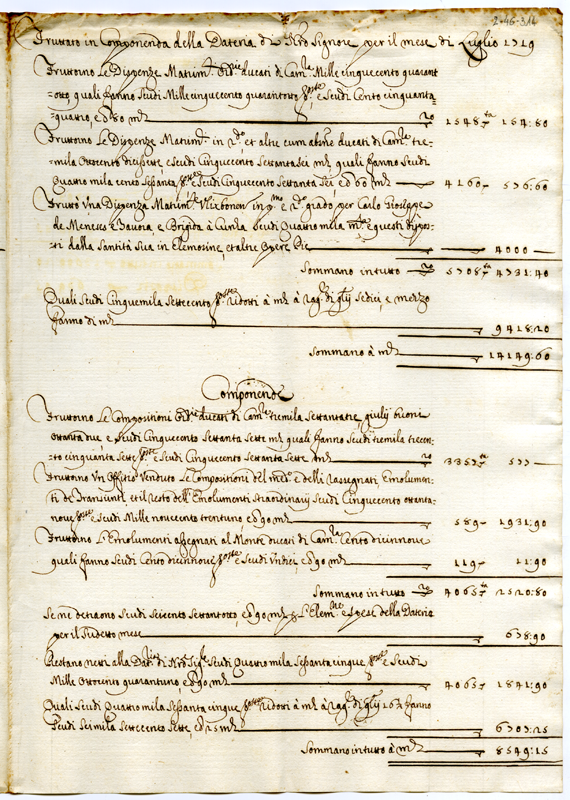 2-46-314
Fruttato in Componenda della Dateria di Nro Signore per il mese di Luglio 1719
Fruttorno Le Dispenze Matrim. ducati di Cam.ra Mille cinquecento quarant
=otto, quali fanno scudi Mille cinquecento quarantotto e scudi Cento cinquanta=
=quattro, e 80 m.ta 1548 154:80
Fruttorno Le Dispenze Matrim. in 2.do, et altre cum ducati di Cam.ra tre=
=mila Ottocento e scudi Cinquecento Settantasei m.ta quali fanno scudi
Quattro mila cento sessanta e scudi Cinquecento Settanta sei ed 60 m.ta 4160 576:60
Fruttò Una Dispenza Matrim. in p.mo e 2.do grado per Carlo Gioseppe
de Meneses e Brigida à Cunha scudi Quattro mila m.ta e questi dispos=
=ti dalla Santità Sua in Elemosine, et altre Opere Pie 4000
Sommano in tutto 5708 4731:40
Quali scudi Cinquemila Settecento ridotti à m.ta à di giulij sedici, e mezzo
fanno di m.ta 9418:20
Sommano à m.ta 14149:60
Componende
Fruttorno Le Compositioni ducati di Cam.ra tremila Settantatre, giulij buoni
Ottanta due e scudi Cinquecento Settanta sette m.ta quali fanno scudi tremila trecen=
=to cinquanta sette e scudi Cinquecento Settanta sette m.ta 3357 577
Fruttorno Un Offitio Venduto Le Compositioni del med.o e delli rassegnati Emolumen=
=ti de Transunti et il resto dell' Emolumenti straordinarij scudi Cinquecento ottanta=
=nove e scudi Mille novecento trentuno ed 90 m.ta 589 1931:90
Fruttorno L'Emolumenti assegnati al Monte ducati di Cam.ra Cento dicinnove
quali fanno scudi Cento dicinnove e scudi Undici, ed 90 m.ta 119 11:90
Sommano in tutto 4065 2520:80
Se ne detraono scudi seicento settantotto, ed 90 m.ta p. L'Elem.ne e spese della Dateria
per il sudetto mese 678:90
Restano netti alla Dat.ria di Nro Sig.re scudi Quattro mila sessanta cinque e scudi
Mille Ottocento quarantuno, ed 90 m.ta 4065 1841:90
Quali scudi Quattro mila sessanta cinque ridotti à m.ta à di giulij 16½ fanno
scudi sei mila settecento sette, ed 25 m.ta 6707:25
Sommano in tutto à m.ta 8549:15